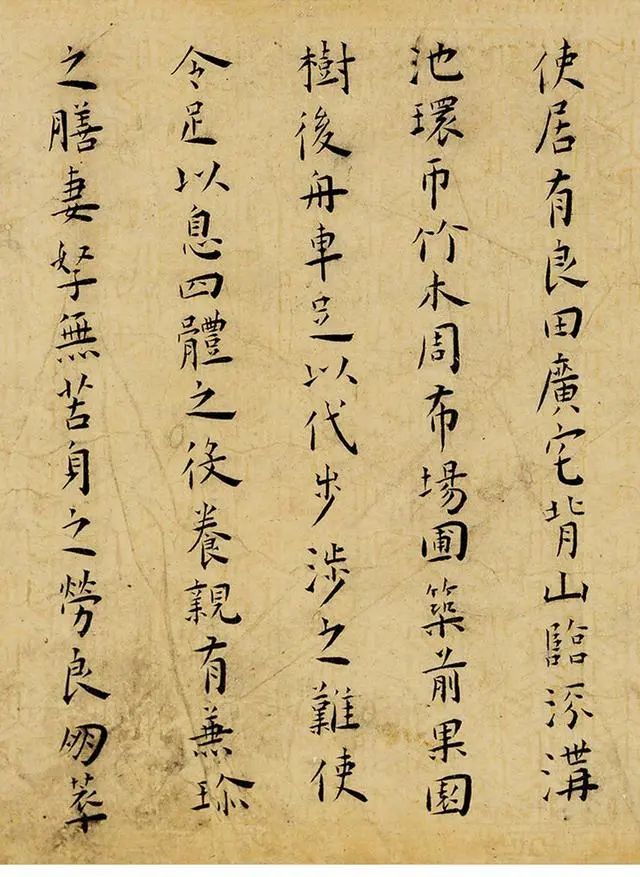 使居有良田廣宅背山臨流溝
池環帀竹木周布場圃築前果園
樹後舟車足以代步涉之難使
令足以息四體之役養親有兼珎
之膳妻孥無苦身之勞良朋萃